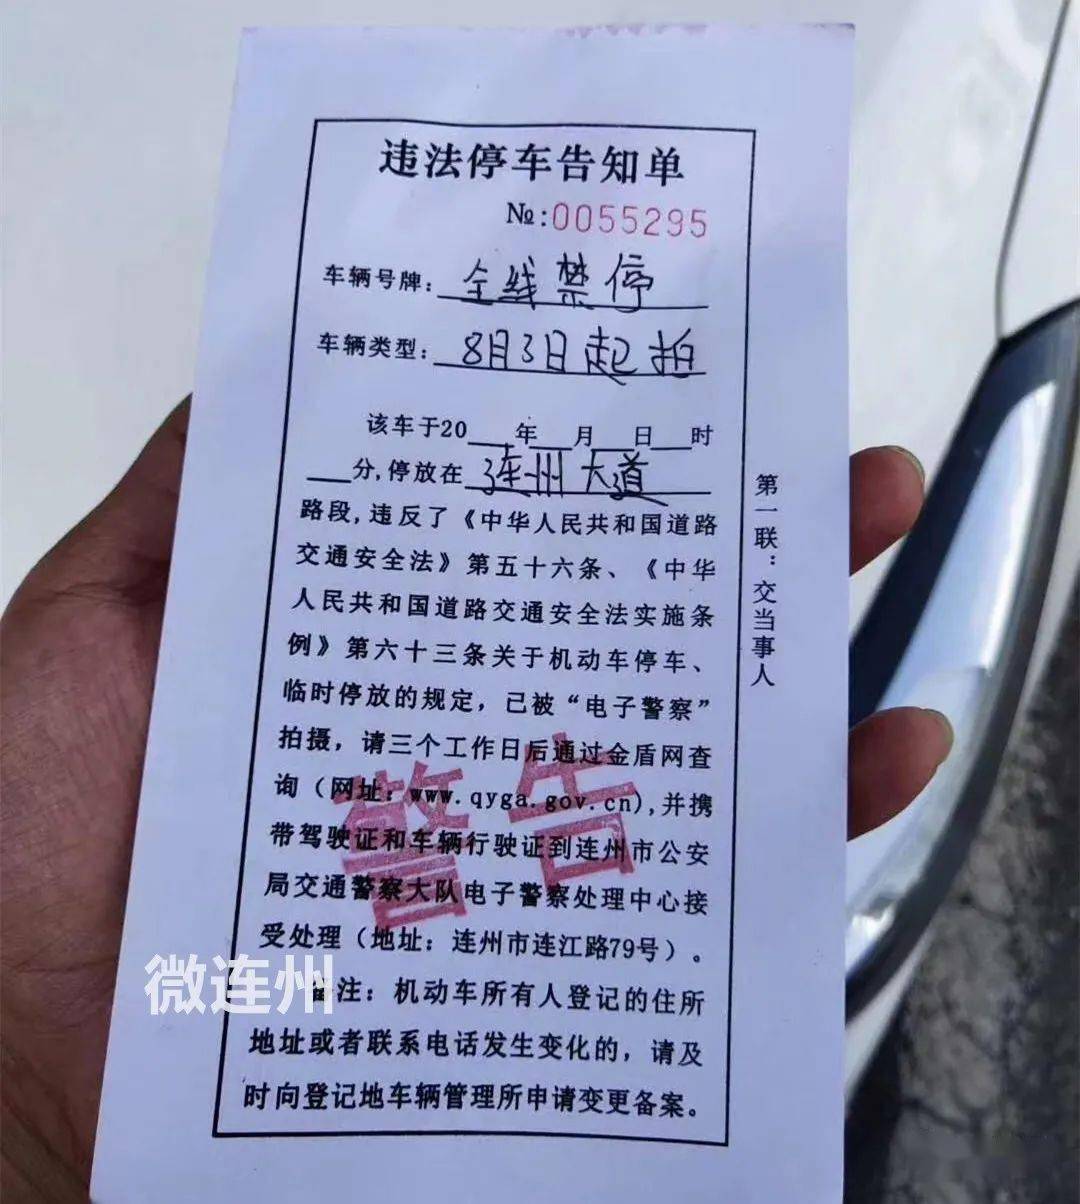 违法停车告知单
№:0055295
车辆号牌：全线禁停
车辆类型：8月3日起拍
该车于20___年___月___日___时
___分,停放在连州大道
路段,违反了《中华人民共和国道路
交通安全法》第五十六条、《中华
人民共和国道路交通安全法实施条
例》第六十三条关于机动车停车、
临时停放的规定，已被“电子警察”
拍摄，请三个工作日后通过金盾网查
询（网址：www.qyga.gov.cn),并携
带驾驶证和车辆行驶证到连州市公安
局交通警察大队电子警察处理中心接
受处理（地址：连州市连江路79号）。
备注：机动车所有人登记的住所
地址或者联系电话发生变化的，请及
时向登记地车辆管理所申请变更备案。
第一联：交当事人
警告
微连州